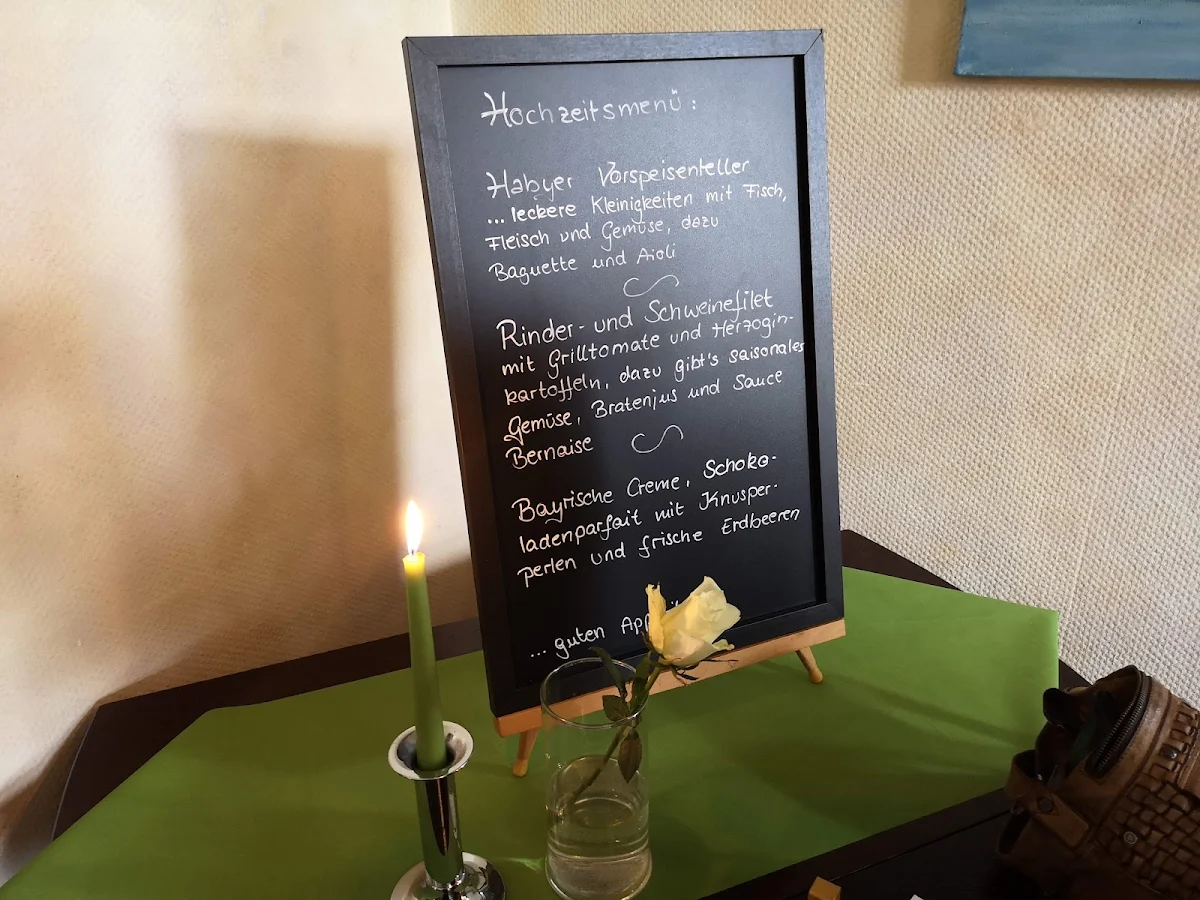 Hochzeitsmenü:
Habyer Vorspeisenteller
... leckere Kleinigkeiten mit Fisch,
Fleisch und Gemüse, dazu
Baguette und Aioli
Rinder- und Schweinefilet
mit Grilltomate und Herzogin-
kartoffeln, dazu gibt's saisonales
Gemüse, Bratenjus und Sauce
Bernaise
Bayrische Creme, Schoko-
ladenparfait mit Knusper-
perlen und frische Erdbeeren
... guten